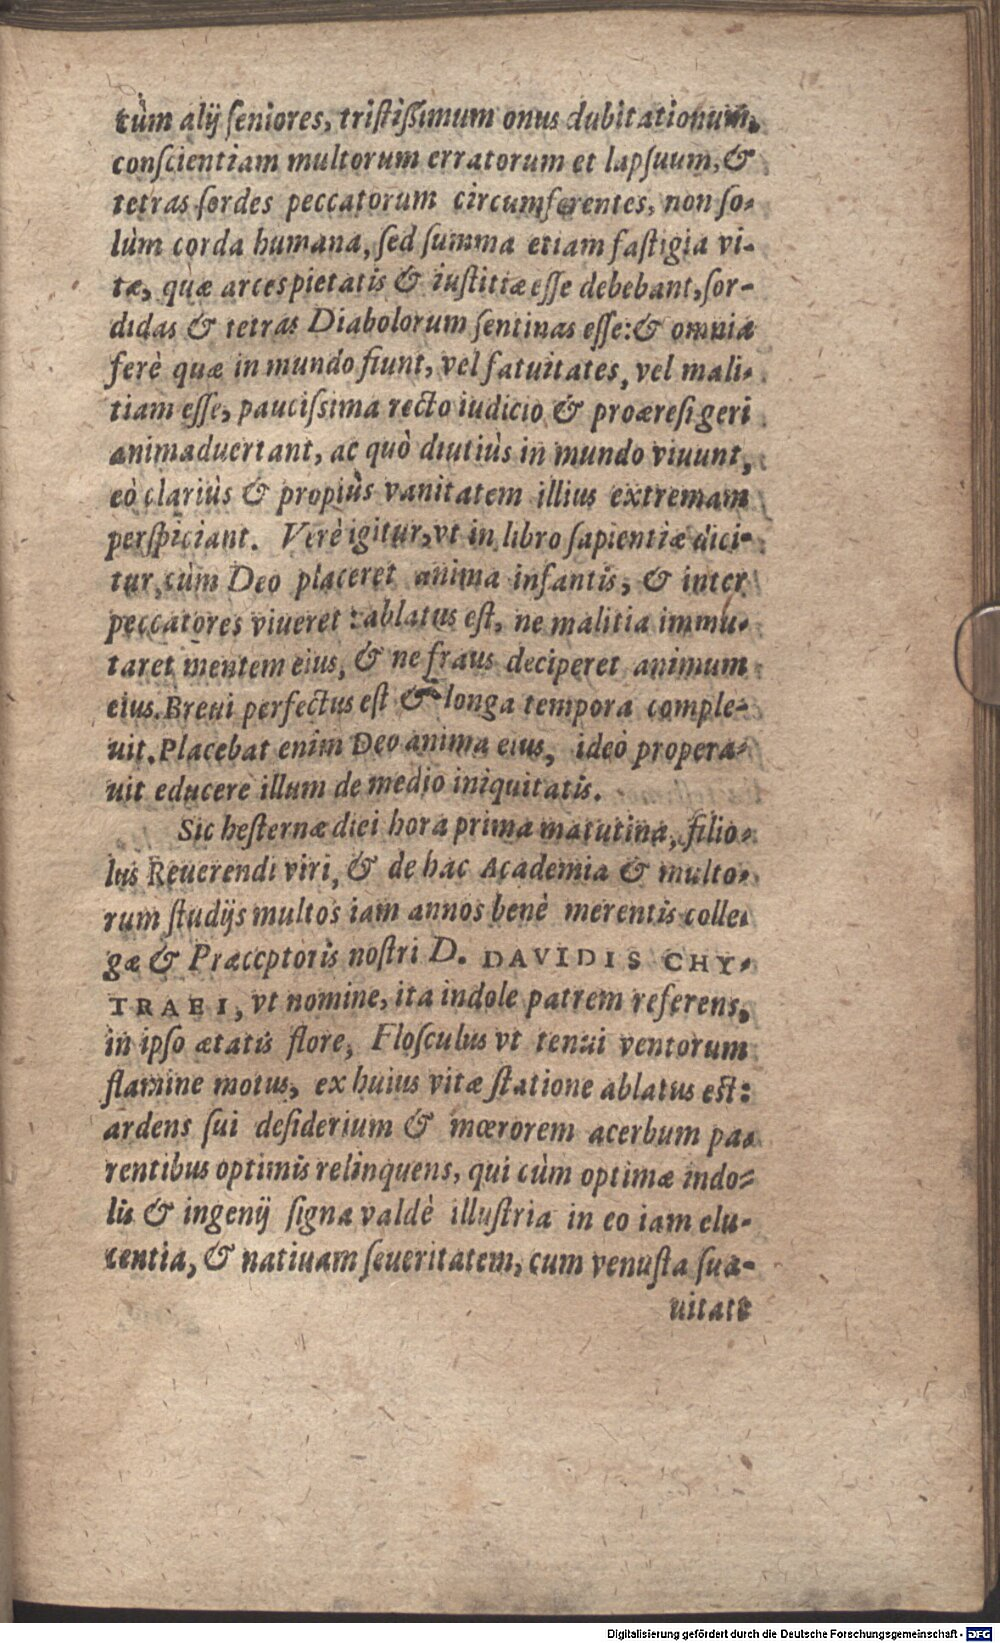 cùm alij ſeniores, triſtiſsimum onus dubitationum,
conſcientiam multorum erratorum et lapſuum, &
tetras ſordes peccatorum circumferentes, non ſo-
lùm corda humana, ſed ſumma etiam faſtigia vi-
tæ, quæ arces pietatis & iuſtitiæ eſſe debebant, ſor-
didas & tetras Diabolorum ſentinas eſſe: & omnia
ferè quæ in mundo fiunt, vel fatuitates, vel mali-
tiam eſſe, pauciſsima recto iudicio & proæreſi geri
animaduertant, ac quò diutiùs in mundo viuunt,
eò clariùs & propiùs vanitatem illius extremam
perſpiciant. Verè igitur, vt in libro ſapientiæ dici-
tur, cùm Deo placeret anima infantis, & inter
peccatores viueret: ablatus eſt, ne malitia immu-
taret mentem eius, & ne fraus deciperet animum
eius. Breui perfectus eſt & longa tempora comple-
uit. Placebat enim Deo anima eius, ideò propera-
uit educere illum de medio iniquitatis.
Sic heſternæ diei hora prima matutina, filio-
lus Reuerendi viri, & de hac Academia & multo-
rum ſtudijs multos iam annos benè merentis colle-
gæ & Præceptoris noſtri D. DAVIDIS CHY-
TRAEI, vt nomine, ita indole patrem referens,
in ipſo ætatis flore, Floſculus vt tenui ventorum
flamine motus, ex huius vitæ ſtatione ablatus eſt:
ardens ſui deſiderium & mœrorem acerbum pa-
rentibus optimis relinquens, qui cùm optimæ indo-
lis & ingenij ſigna valdè illuſtria in eo iam elu-
centia, & natiuam ſeueritatem, cum venuſta ſua-
uitate
Digitalisierung gefördert durch die Deutsche Forschungsgemeinschaft - DFG